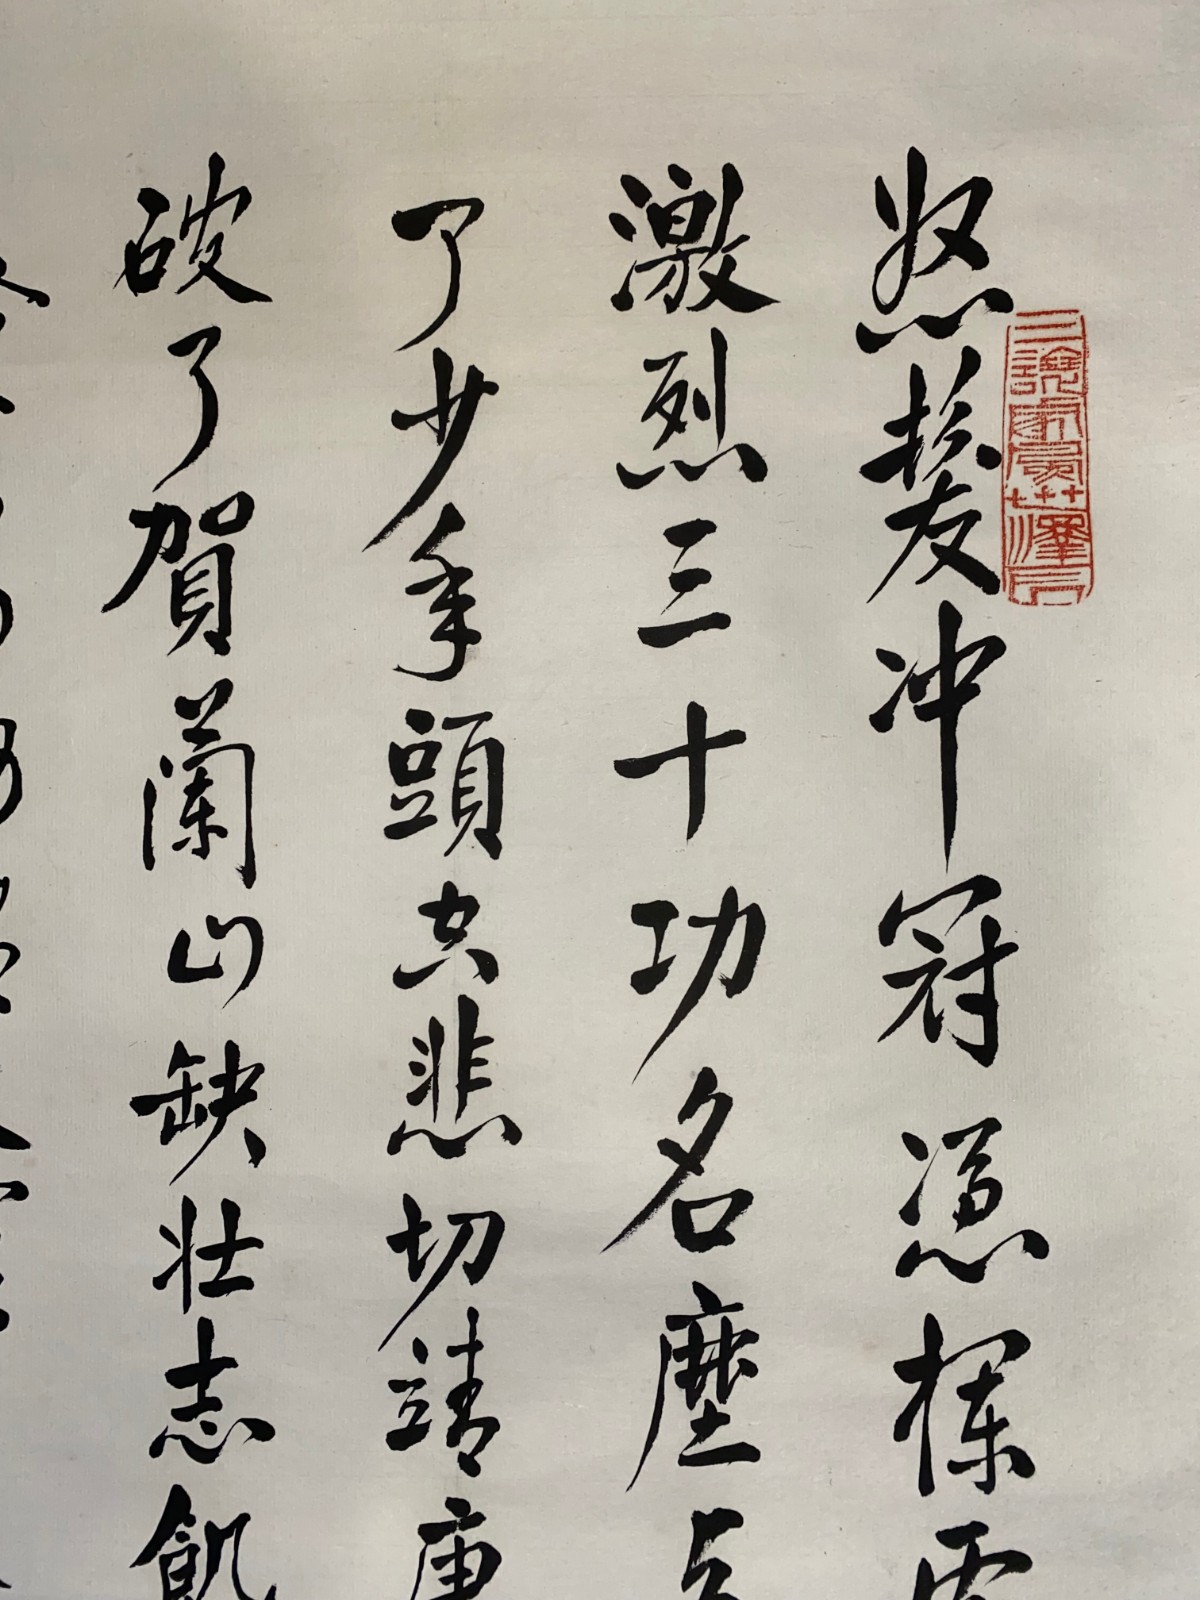 怒髮冲冠憑欄
激烈三十功名塵
了少年頭空悲切靖
破了賀蘭山缺壯志飢